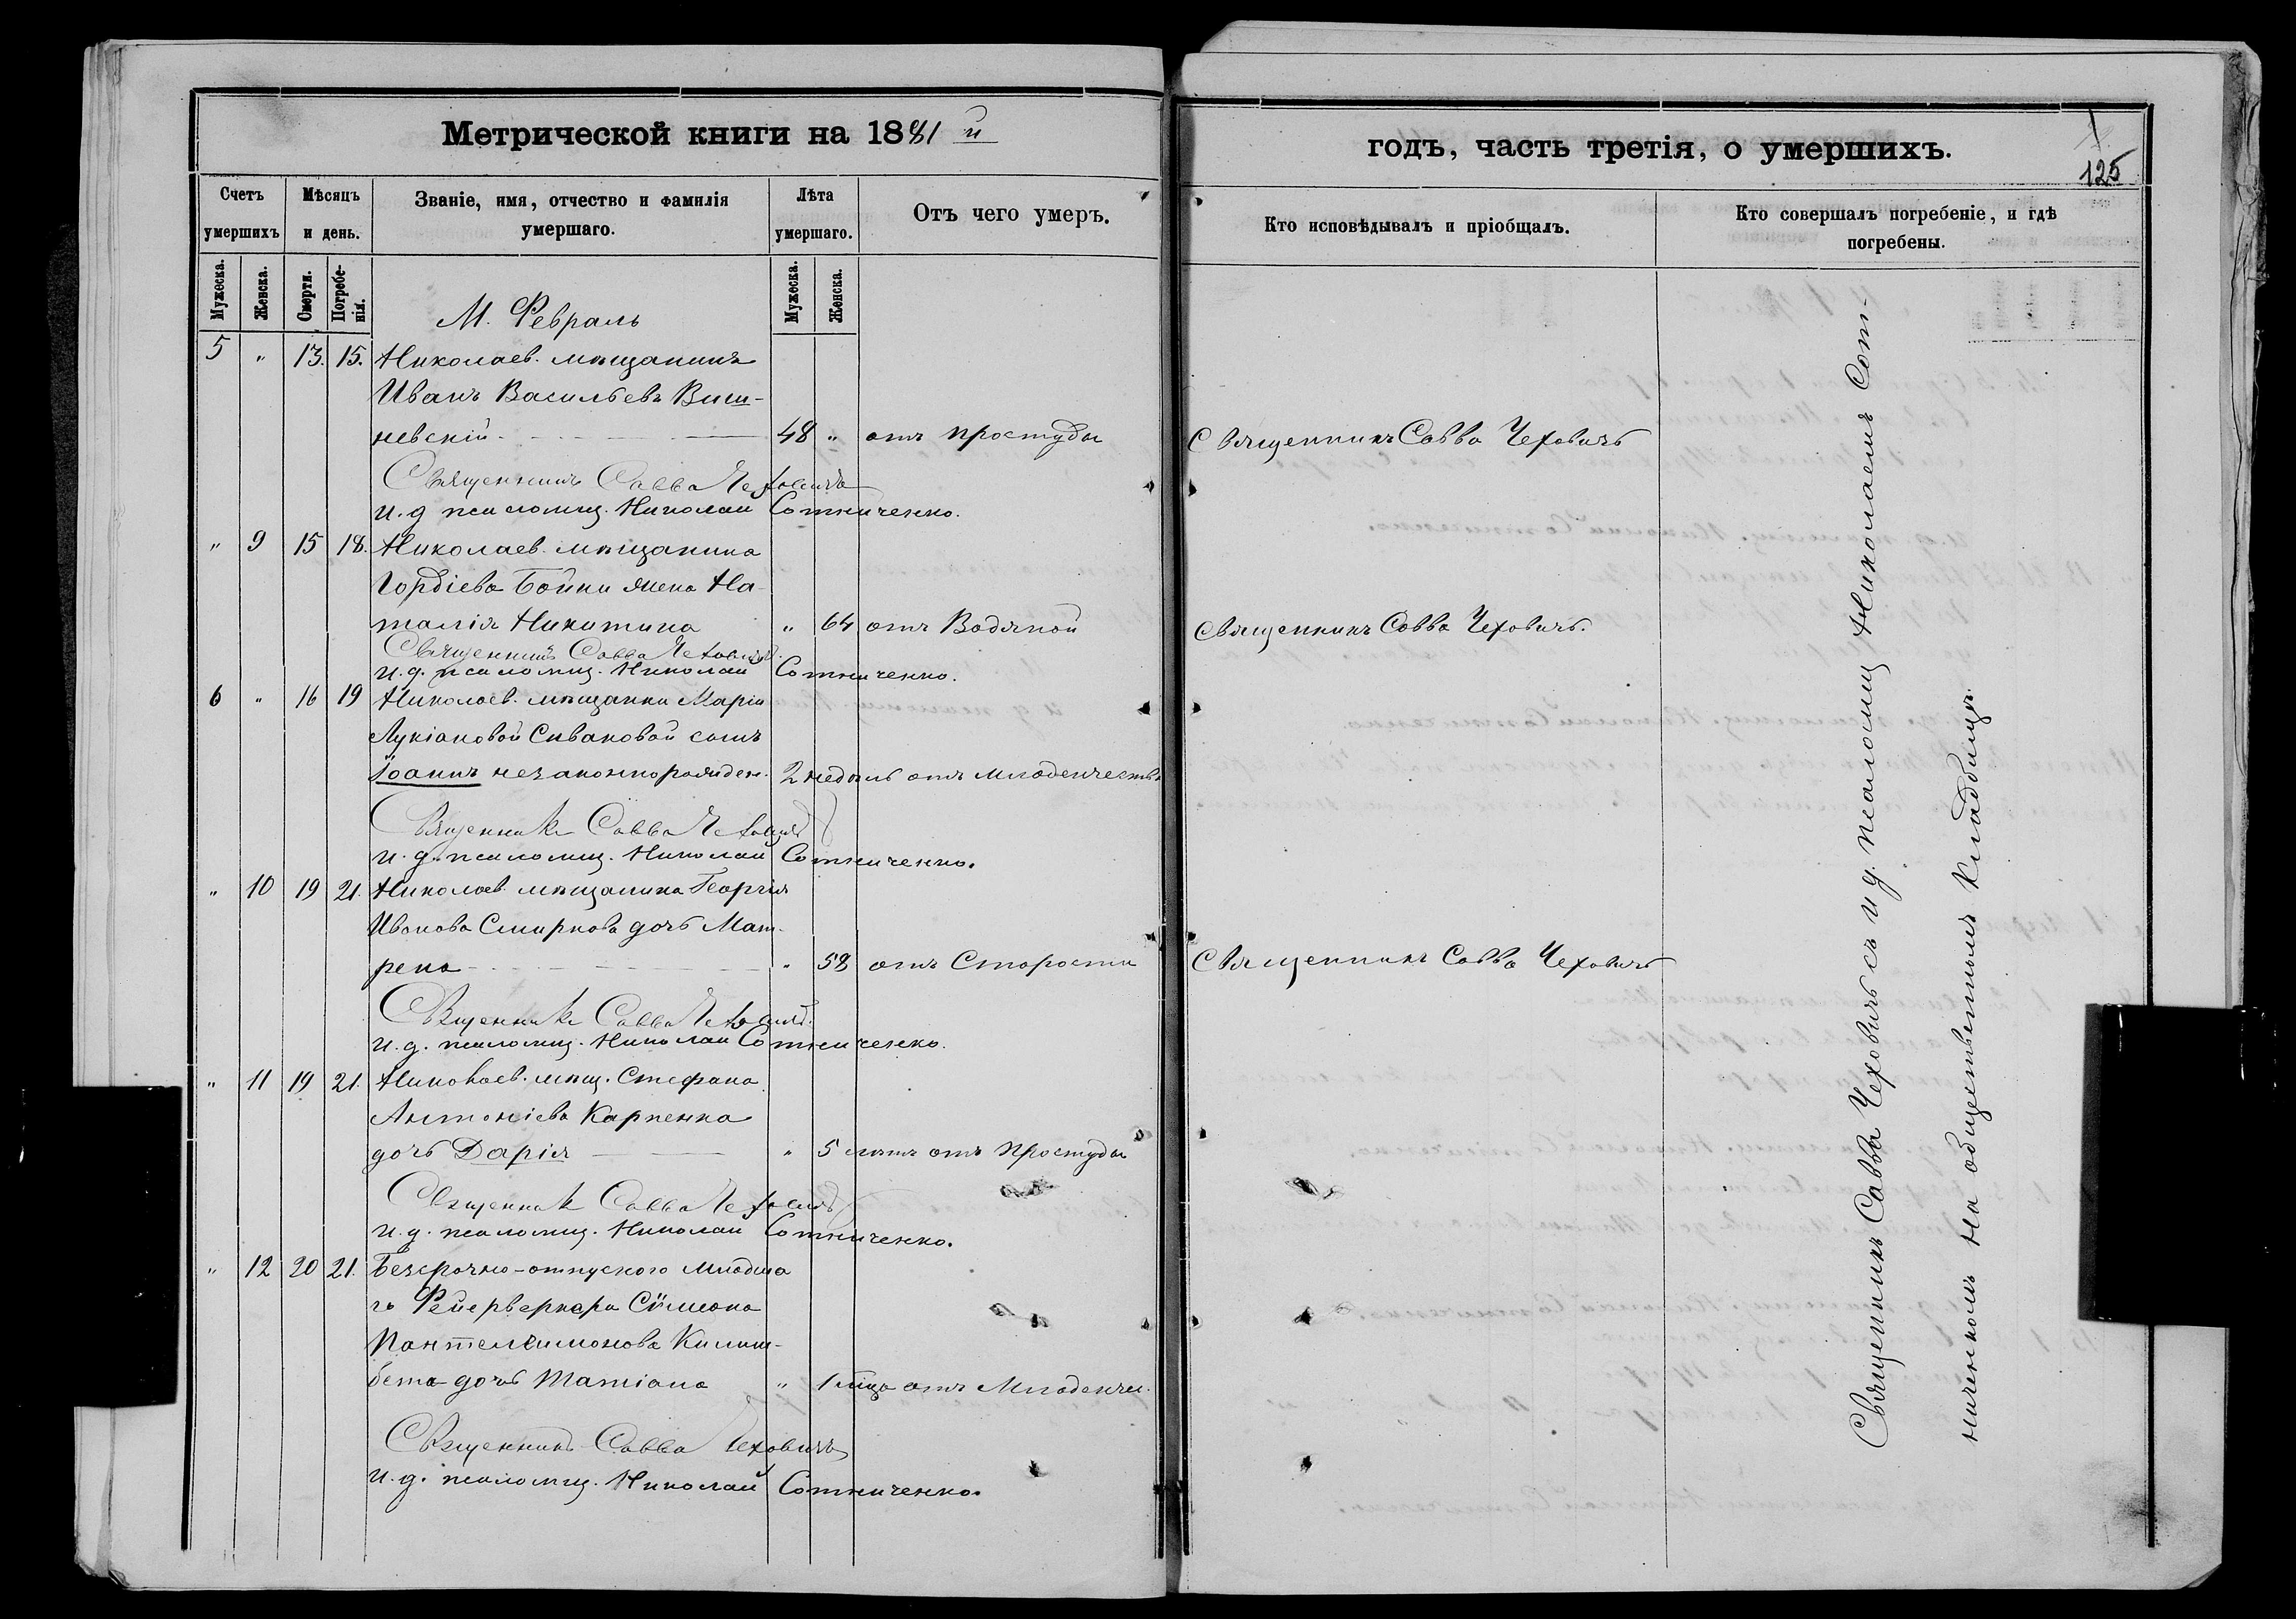 Метрической книги на 1881 й
годъ, часть третія, о умершихъ.
125
Счетъ умершихъ
Мѣсяцъ и день.
Званіе, имя, отчество и фамилія умершаго.
Лѣта умершаго.
Отъ чего умеръ.
Кто исповѣдывалъ и пріобщалъ.
Кто совершалъ погребеніе, и гдѣ погребены.
Мужеска.
Женска.
Смерти.
Погребенія.
Мужеска.
Женска.
М. Февраль
5 " 13. 15. Николаев. мѣщанинъ
Иванъ Васильевъ Виш-
невскій 48 " отъ простуды Священникъ Савва Чеховичъ
Священникъ Савва Чеховичъ
и. д. псаломщ. Николай Сотниченко.
" 9 15 18. Николаев. мѣщанина
Гордіева Бойки жена На-
талія Никитина " 64 отъ Водяной Священникъ Савва Чеховичъ.
Священникъ Савва Чеховичъ.
и. д. псаломщ. Николай Сотниченко.
6 " 16 19 Николаев. мѣщанки Маріи
Лукіановой Сиваковой сынъ
Іоаннъ незаконнорожден. 2 недѣль отъ младенчества
Священникъ Савва Чеховичъ
и. д. псаломщ. Николай Сотниченко.
" 10 19 21. Николаев. мѣщанина Георгія
Иванова Смирнова дочь Мат-
рена " 58 отъ Старости Священникъ Савва Чеховичъ
Священникъ Савва Чеховичъ.
и. д. псаломщ. Николай Сотниченко.
" 11 19 21. Николаев. мѣщ. Стефана
Антоніева Карпенка
дочь Дарія " 5 лѣтъ отъ простуды
Священникъ Савва Чеховичъ
и. д. псаломщ. Николай Сотниченко.
" 12 20 21. Безсрочно-отпуского младша
го Фейерверкера Сѵмеона
Пантелеимонова
дочь Татіана " 1 мѣца отъ Младенчес.
Священникъ Савва Чеховичъ
и. д. псаломщ. Николай Сотниченко.
Священникъ Савва Чеховичъ съ и д. псаломщ Николаемъ Сот-
ниченкомъ на общественномъ кладбищѣ.